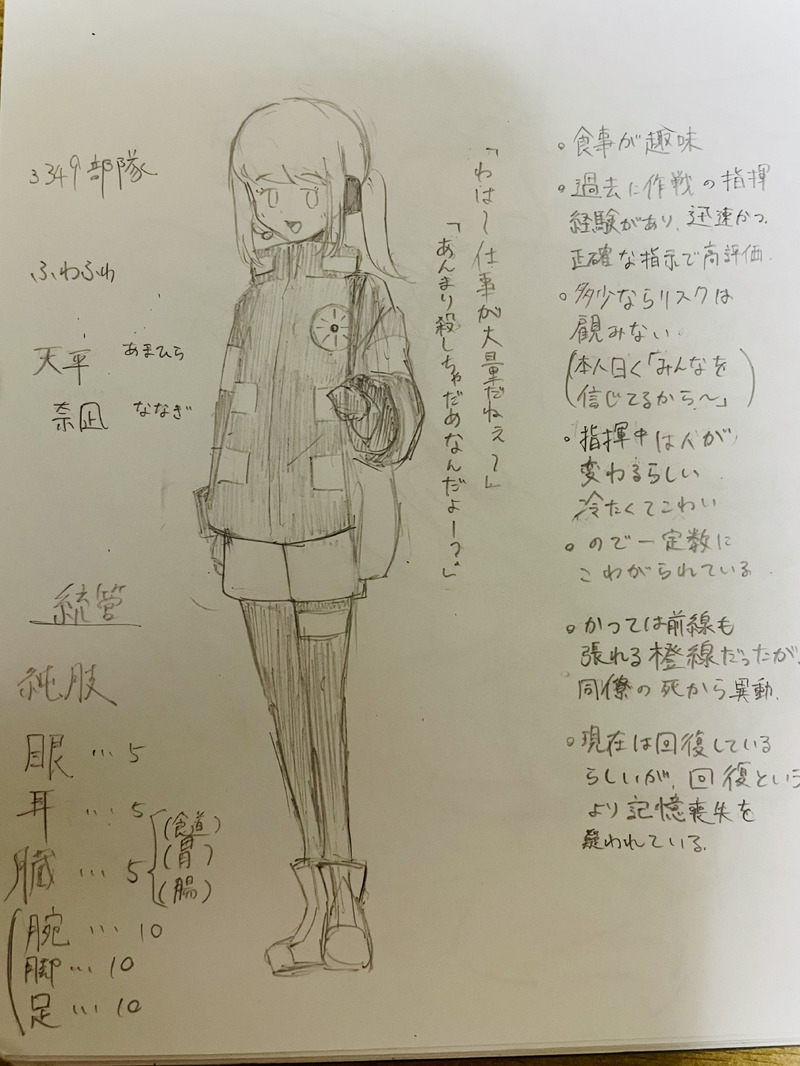 3349部隊
ふわふわ
天平 あまひら
奈凪 ななぎ
統管
純肢
眼…5
耳…5
臓…5
(食道)
(胃)
(腸)
腕…10
脚…10
足…10
「わは〜仕事が大量だねぇ〜」
「あんまり殺しちゃだめなんだよー?」
。食事が趣味
。過去に作戦の指揮
経験があり、迅速かつ
正確な指示で高評価.
。多少ならリスクは
観みない。
(本人曰く「みんなを
信じてるから〜」)
。指揮中は人が
変わるらしい
冷たくてこわい
。ので一定数に
こわがられている
。かつては前線も
張れる橙線だったが、
同僚の死から異動.
。現在は回復している
らしいが、回復という
より記憶喪失を
疑われている.